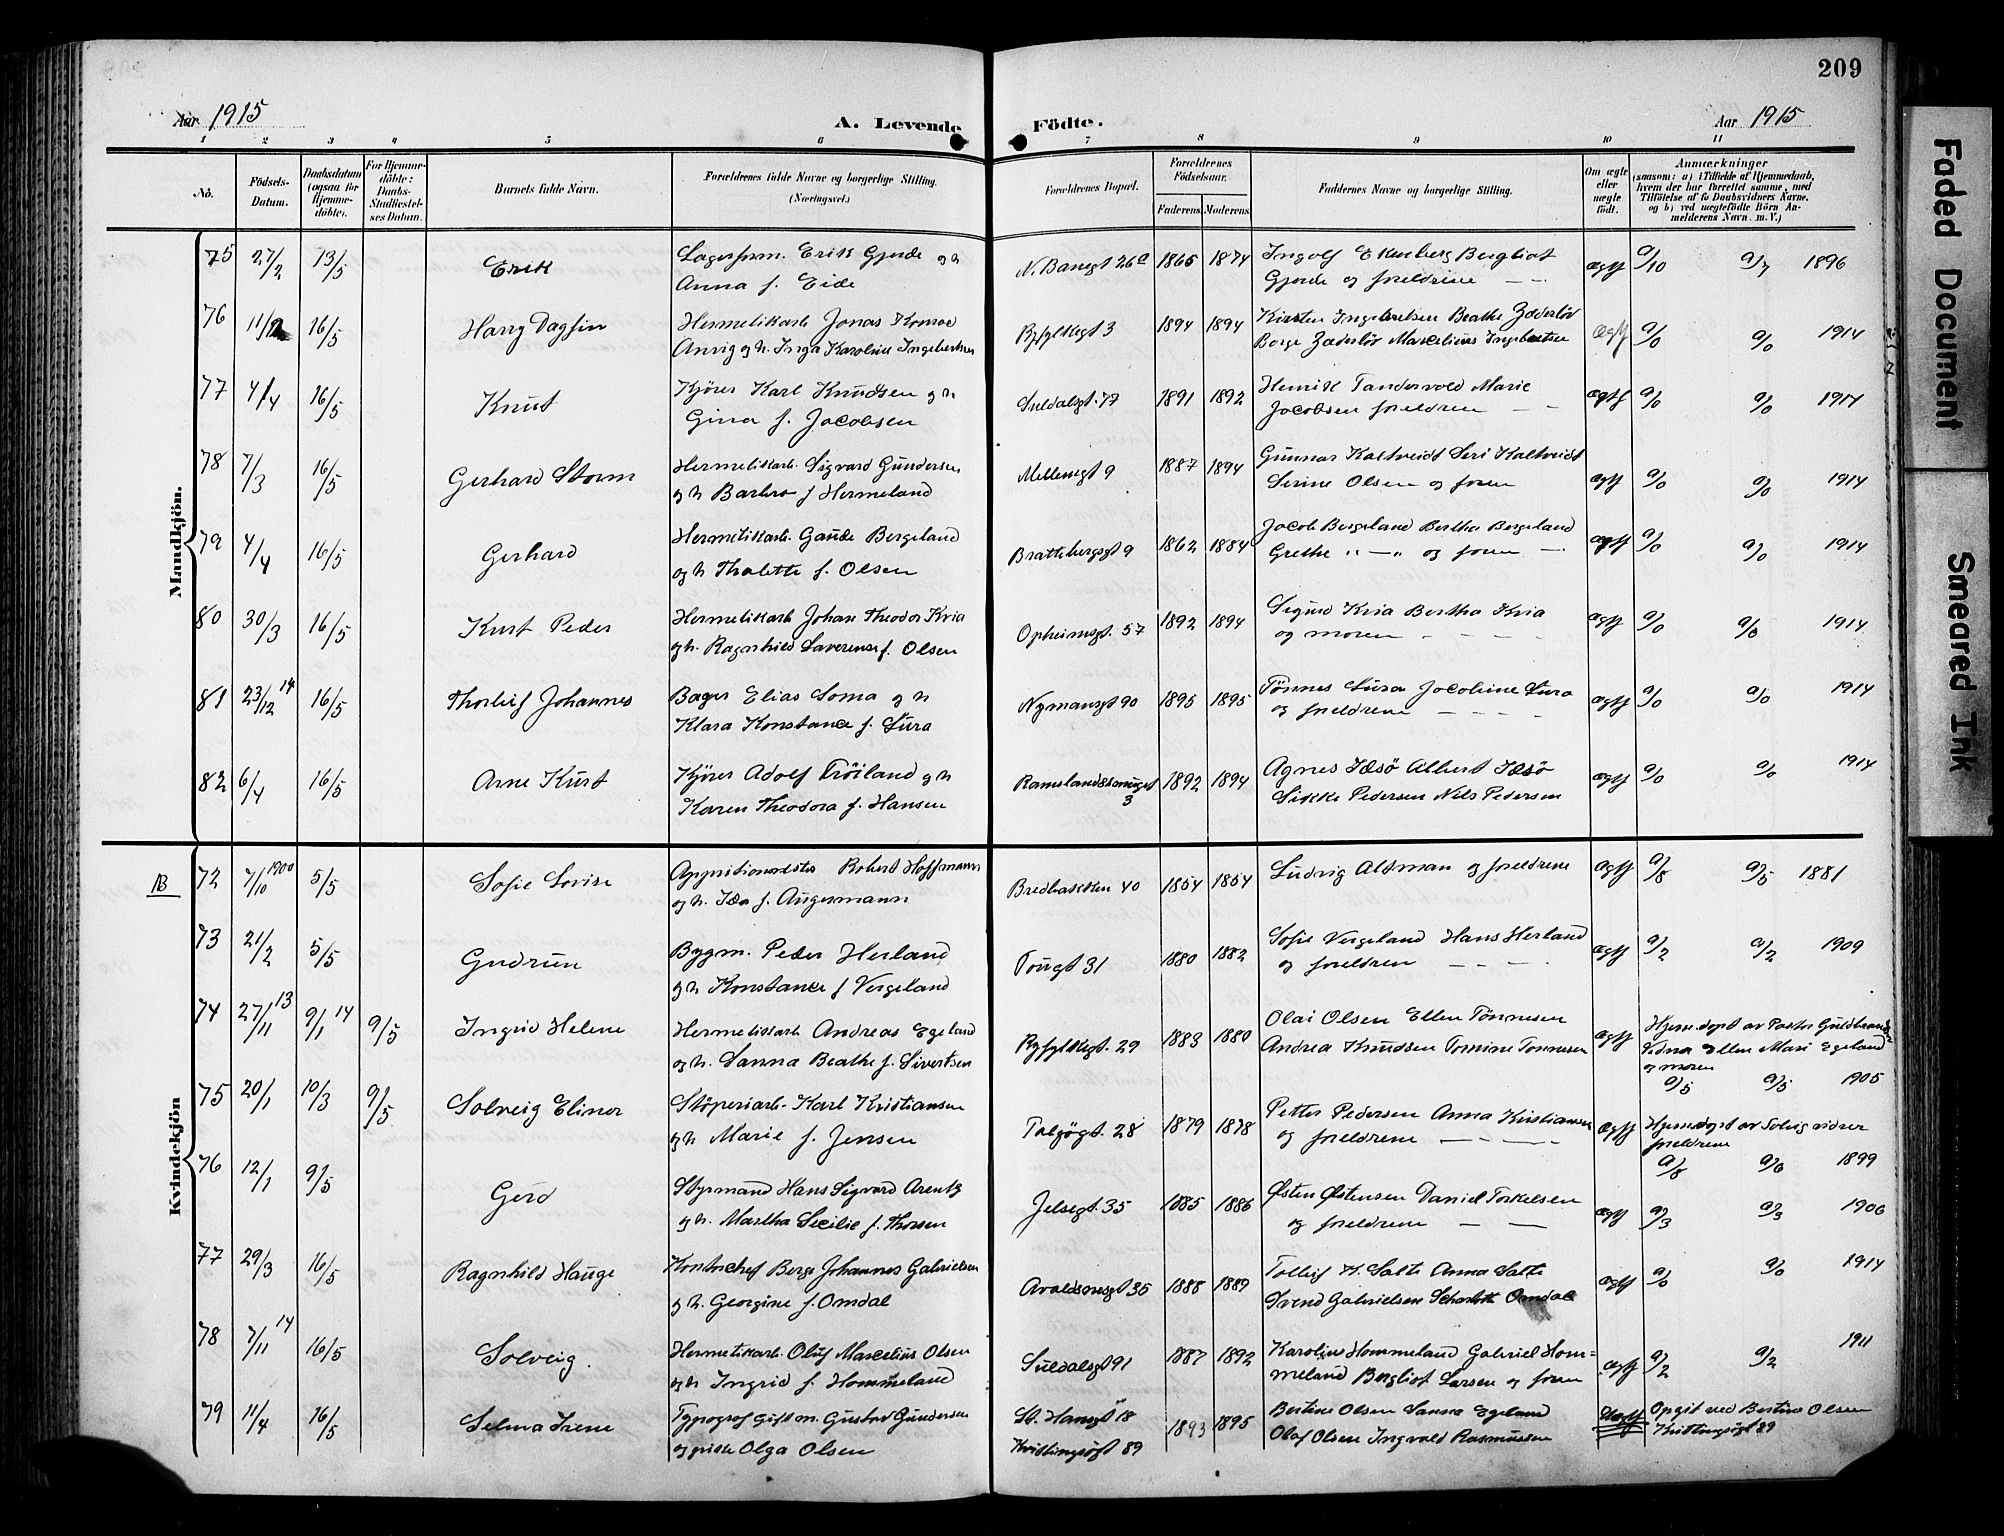 209
Aar 1915
A. Levende Födte.
Aar 1915
1 2 3 4 5 6 7 8 9 10 11
No.
Födsels-Datum.
Daabsdatum (ogsaa for Hjemme-döbte).
For Hjemme-döbte: Daabs-Stadfæstel-ses Datum.
Barnets fulde Navn.
Forældrenes fulde Navne og borgerlige Stilling.
(Næringsvei.)
Forældrenes Bopæl.
Forældrenes Födselsaar.
Faderens. Moderens.
Faddernes Navne og borgerlige Stilling.
Om ægte eller uægte født.
Anmærkninger
(saasom: a) i Tilfælde af Hjemmedaab, hvem der har forrettet samme, med Tilföielse af to Daabsvidners Navne, og b) ved uægtefödte Börn An-melderens Navn. m. V.)
Mandkjön.
75 27/2 13/5 Erik Lagerform. Erik Gjerde og h
Anna f. Eide
N. Banegt 26a 1865 1874 Ingolf Ekenberg Bergliot
Gjerde og foreldrene ægtf 9/10 9/7 1896
76 16/5 Harry Dagfin Hermetikarb Jonas Konrad
Anvig og h. Inga Karoline Ingebretsen
Ryfylkegt 3 1894 1894 Kirsten Ingebretsen Beathe Zederløv
Borge Zederløv Marcelius Ingebretsen ægtf 9/0 9/0 1914
77 4/4 16/5 Knut Kjører Karl Knudsen og h
Gina f. Jacobsen
Suldalsgt. 77 1891 1892 Henrik Tandervold Marie
Jacobsen foreldrene ægtf 9/0 9/0 1914
78 7/3 16/5 Gerhard Storm Hermetikarb. Sigvard Gundersen
og h Barbro f Hermeland
Møllegt 9 1887 1894 Gunnar Kaltveidt Siri Kaltveidt
Serine Olsen og foren ægtf 9/0 9/0 1914
79 4/4 16/5 Gerhard Hermetikarb. Gaude Bergeland
og h Thalette f. Olsen
Brattebergsgt 9 1862 1884 Jacob Bergeland Bertha Bergeland
Grethe " — " og foren ægtf 9/0 9/0 1914
80 30/3 16/5 Kurt Peder Hermetikarb Johan Theodor Kvia
og h. Ragnhild Laverense f. Olsen
Opheimsgt. 57 1892 1894 Sigurd Kvia Bertha Kvia
og moren ægtf 9/0 9/0 1914
81 23/12 14 16/5 Thorleif Johannes Bager Elias Soma og h
Klara Konstance f. Lura
Nymansgt 90 1895 1895 Tønnes Lura Jacobine Lura
og foreldrene ægtf 9/0 9/0 1914
82 6/4 16/5 Arne Kurt Kjører Adolf Trøiland og h
Karen Theodora f. Hansen
3 1892 1894 Agnes Idsø Albert Idsø
Sikke Pedersen Nils Pedersen ægtf 9/0 9/0 1914
Kvindekjön
NB 72 7/10 1900 5/5 Sofie Lovise Robert Hoffmann
og h. Ida f. Angermann
Bredbakken 40 1854 1854 Ludvig Altman og foreldrene ægtf 9/8 9/5 1881
73 21/2 5/5 Gudrun Bygm. Peder Herland
og h Konstance f Vergeland
Tougt 31 1880 1882 Sofie Vergeland Hans Herland
og foreldren ægtf 9/2 9/2 1909
74 27/11 13 9/1 14 9/5 Ingrid Helene Hermetikarb Andreas Egeland
og h. Sanna Beathe f. Sivertsen
Ryfylkegt. 29 1883 1880 Olai Olsen Ellen Tønnesen
Andrea Knudsen Tomine Tonnesen ægtf Hjemdøpt av Pastor Guldbrand
Ellen Marie Egeland
og moren
9/5 9/5 1905
75 20/1 10/3 9/5 Solveig Elinor Støperiarb. Karl Kristiansen
og h Marie f. Jensen
Talgøgt. 28 1879 1878 Petter Pedersen Anna Kristiansen
og foreldrene ægtf Hjemdøpt av
foreldrene
9/8 9/0 1899
76 12/1 9/5 Gerd Styrmand Hans Sigvard Arentz
og h. Martha Secilie f. Thorsen
Jelsegt. 35 1885 1886 Østen Østensen Daniel Torkelsen
og foreldrene ægtf 9/3 9/3 1906
77 29/3 16/5 Ragnhild Hauge Kontorchef Berge Johannes Gabrielsen
og h. Georgine f. Omdal
Avaldsnesgt 35 1888 1889 Tollef H. Salte Anna Salte
Svend Gabrielsen Scharlotte Omdal ægtf 9/0 9/0 1914
78 7/11 14 16/5 Solveig. Hermetikarb. Oluf Marcelius Olsen
og h Ingrid f. Hommeland
Suldalsgt 91 1887 1892 Karoline Hommeland Gabriel Hom=
meland Bergliot Larsen og foren ægtf 9/2 9/2 1911
79 11/4 16/5 Selma Irene Typograf Gift m. Gustav Gundersen
og pike Olga Olsen
St. Hansgt 18
Kvitlingsøgt 89 1893 1895 Bertine Olsen Sanna Egeland
Olaf Olsen Ingvald Rasmussen Uægtf Opgit ved Bertine Olsen
Kvitlingsøgt 89
Faded Document
Smeared Ink